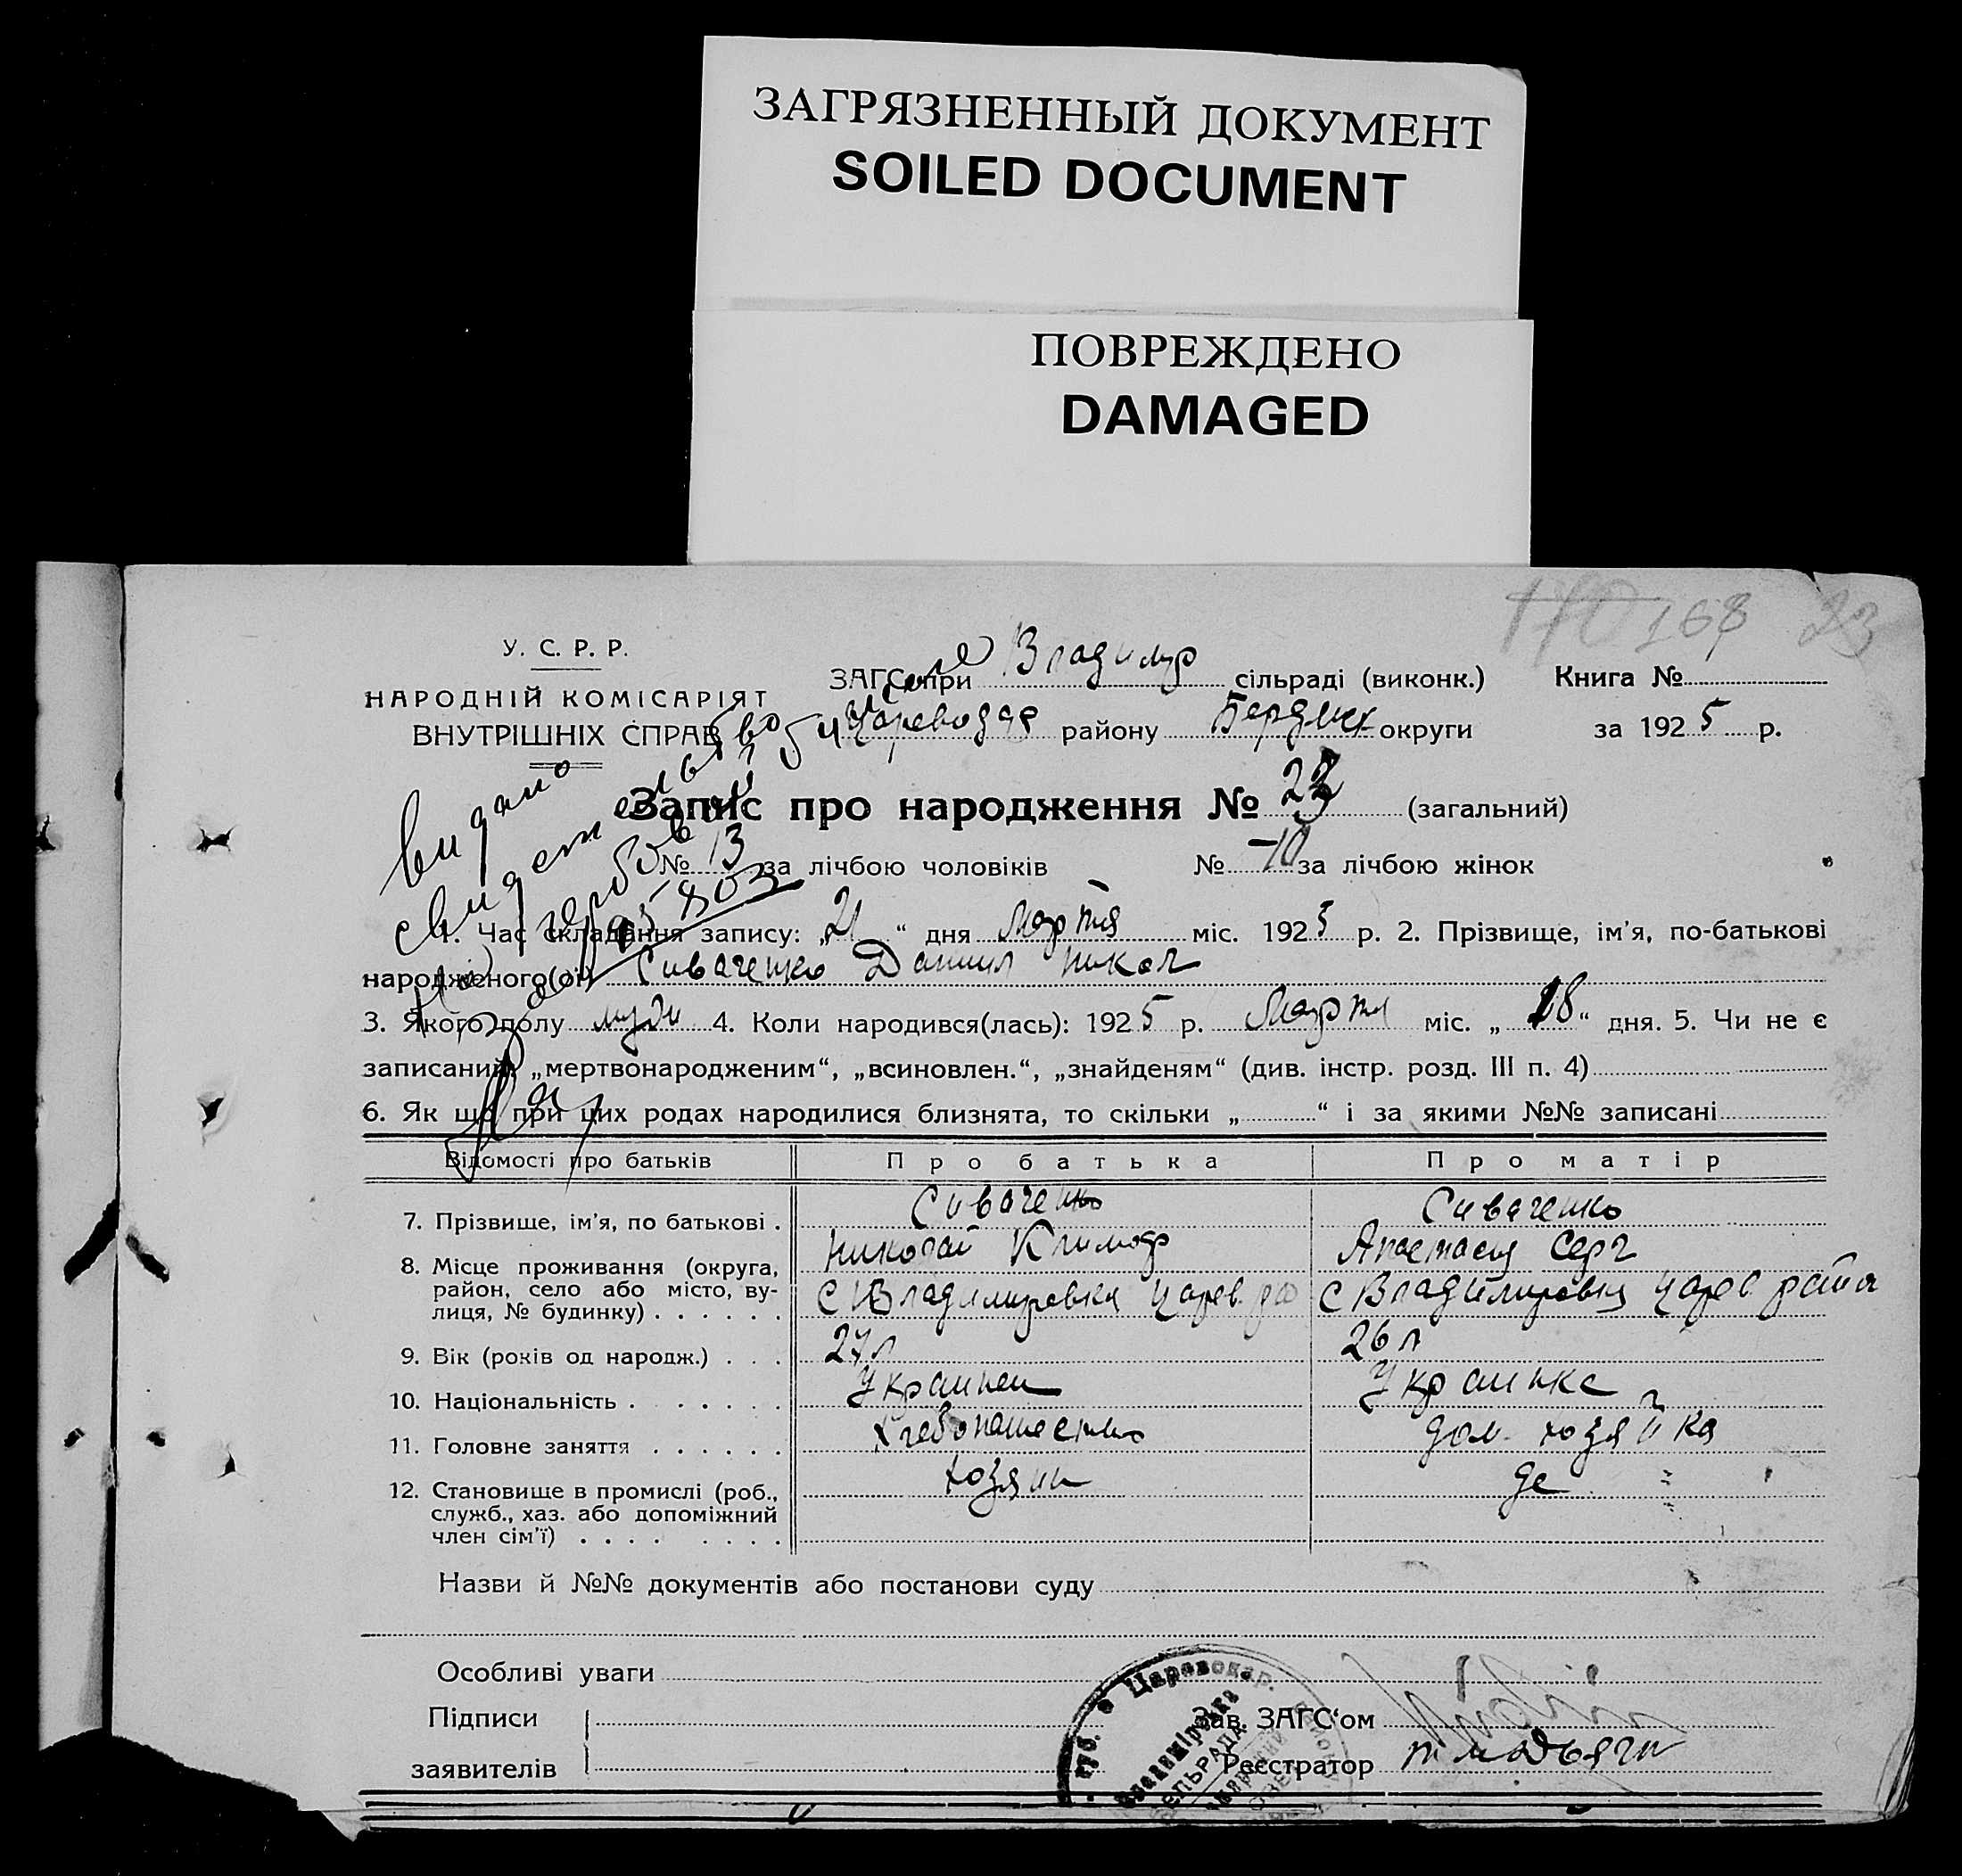 ЗАГРЯЗНЕННЫЙ ДОКУМЕНТ
SOILED DOCUMENT
ПОВРЕЖДЕНО
DAMAGED
170 168 23
У. С. Р. Р.
НАРОДНІЙ КОМІСАРІЯТ
ВНУТРІШНІХ СПРАВ
ЗАГС при Владимир сільраді (виконк.) Книга №
Царевода району Бердянск округи за 1925 р.
Запис про народження № 23 (загальний)
№ 13 за лічбою чоловіків № 10 за лічбою жінок
Видано
свидетельство
1. Час складання запису: „21“ дня Марта міс. 1925 р. 2. Прізвище, ім'я, по-батькові
народженого(ої) Сиваченко Данил Никол
3. Якого полу муж 4. Коли народився(лась): 1925 р. Марта міс. „18“ дня. 5. Чи не є
записаний „мертвонародженим“, „всиновлен.“, „знайденям“ (див. інстр. розд. III п. 4)
6. Як що при цих родах народилися близнята, то скільки „ “ і за якими №№ записані
Відомості про батьків Про батька Про матір
7. Прізвище, ім'я, по батькові . Сиваченко Сиваченко
Николай Климоф Анастасия Серг
8. Місце проживання (округа, район, село або місто, вулиця, № будинку) . . . . . . с Владимировка Царев. ра с Владимировка Царев рата
9. Вік (років од народж.) . . . 27 л 26 л
10. Національність . . . . . . Украинец Украинка
11. Головне заняття . . . . . . Хлебопашество дом. хозяйка
12. Становище в промислі (роб., служб., хаз. або допоміжний член сім'ї) . . . . . . . . хозяин де
Назви й №№ документів або постанови суду
Особливі уваги
Підписи
заявителів
Зав. ЗАГС'ом
Реєстратор